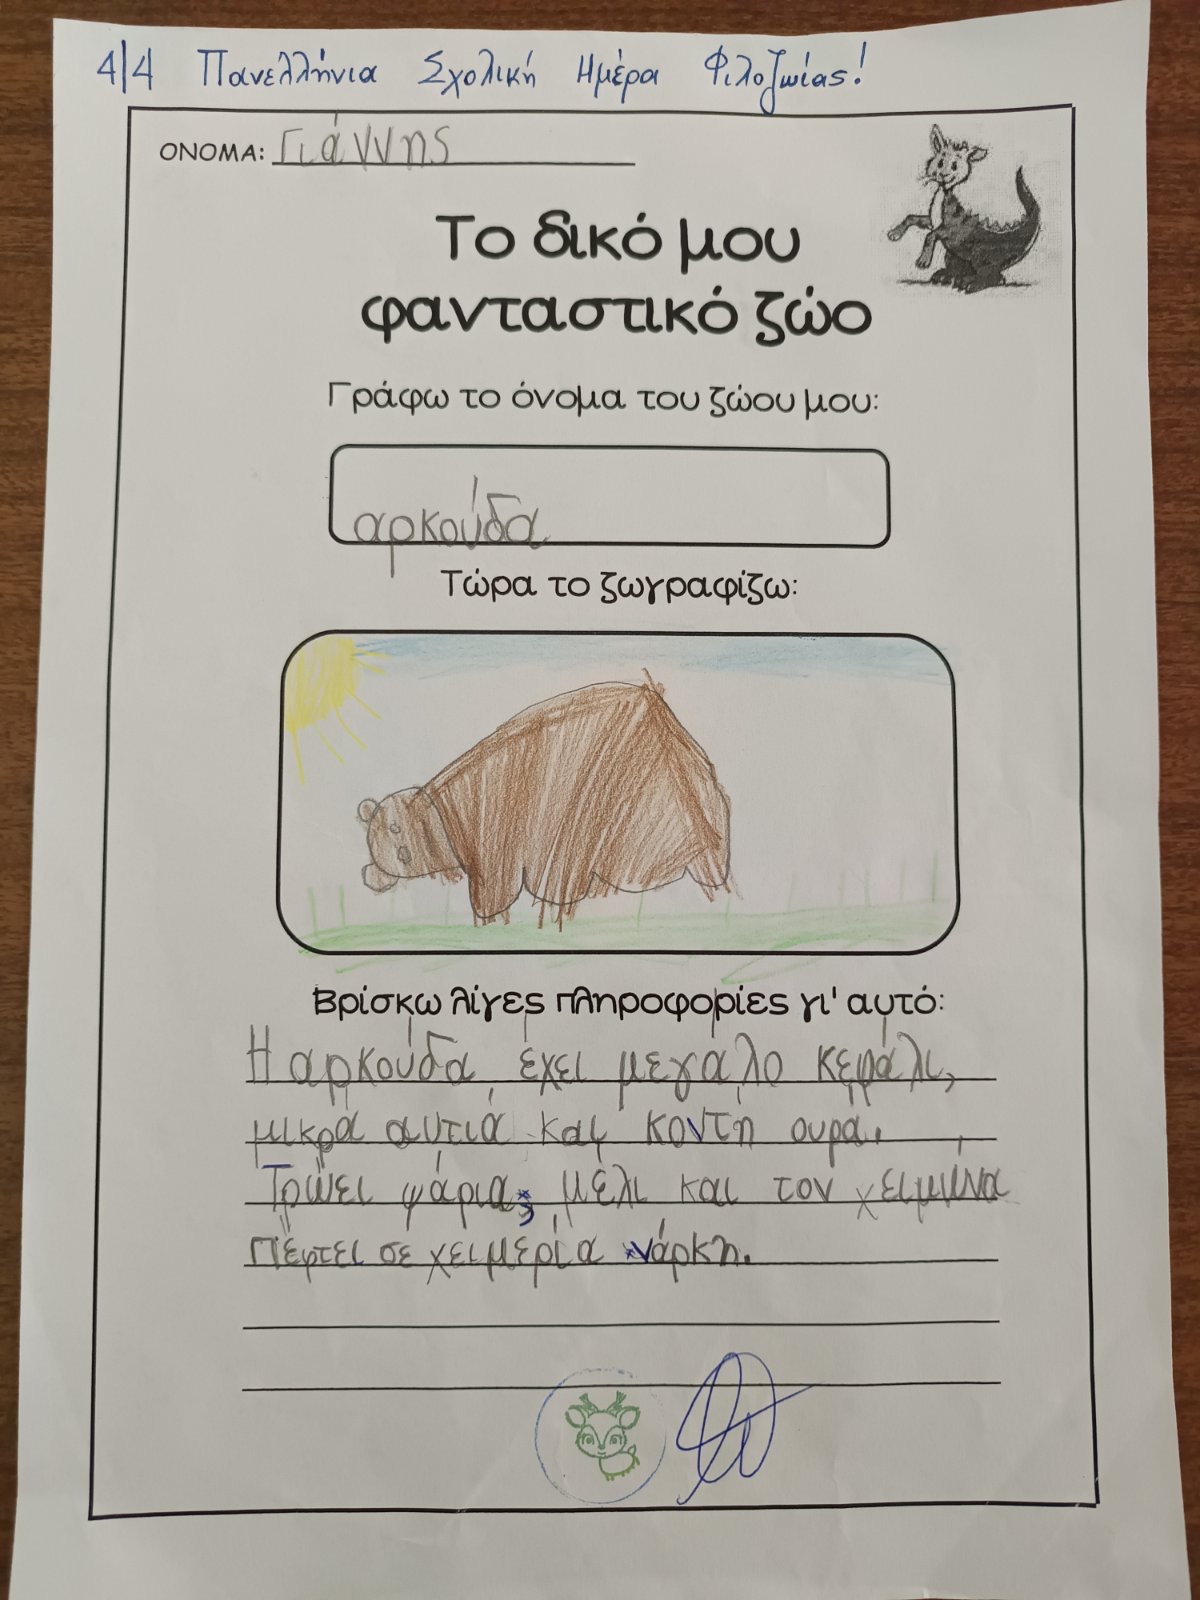 4/4 Πανελλήνια Σχολική Ημέρα Φιλοζωίας!
ΟΝΟΜΑ: Γιάννης
Το δικό μου
φανταστικό ζώο
Γράφω το όνομα του ζώου μου:
αρκούδα
Τώρα το ζωγραφίζω:
Βρίσκω λίγες πληροφορίες γι' αυτό:
Η αρκούδα έχει μεγάλο κεφάλι,
μικρά αυτιά και κοντή ουρά.
Τρώει ψάρια, μέλι και τον χειμώνα
πέφτει σε χειμερία νάρκη.